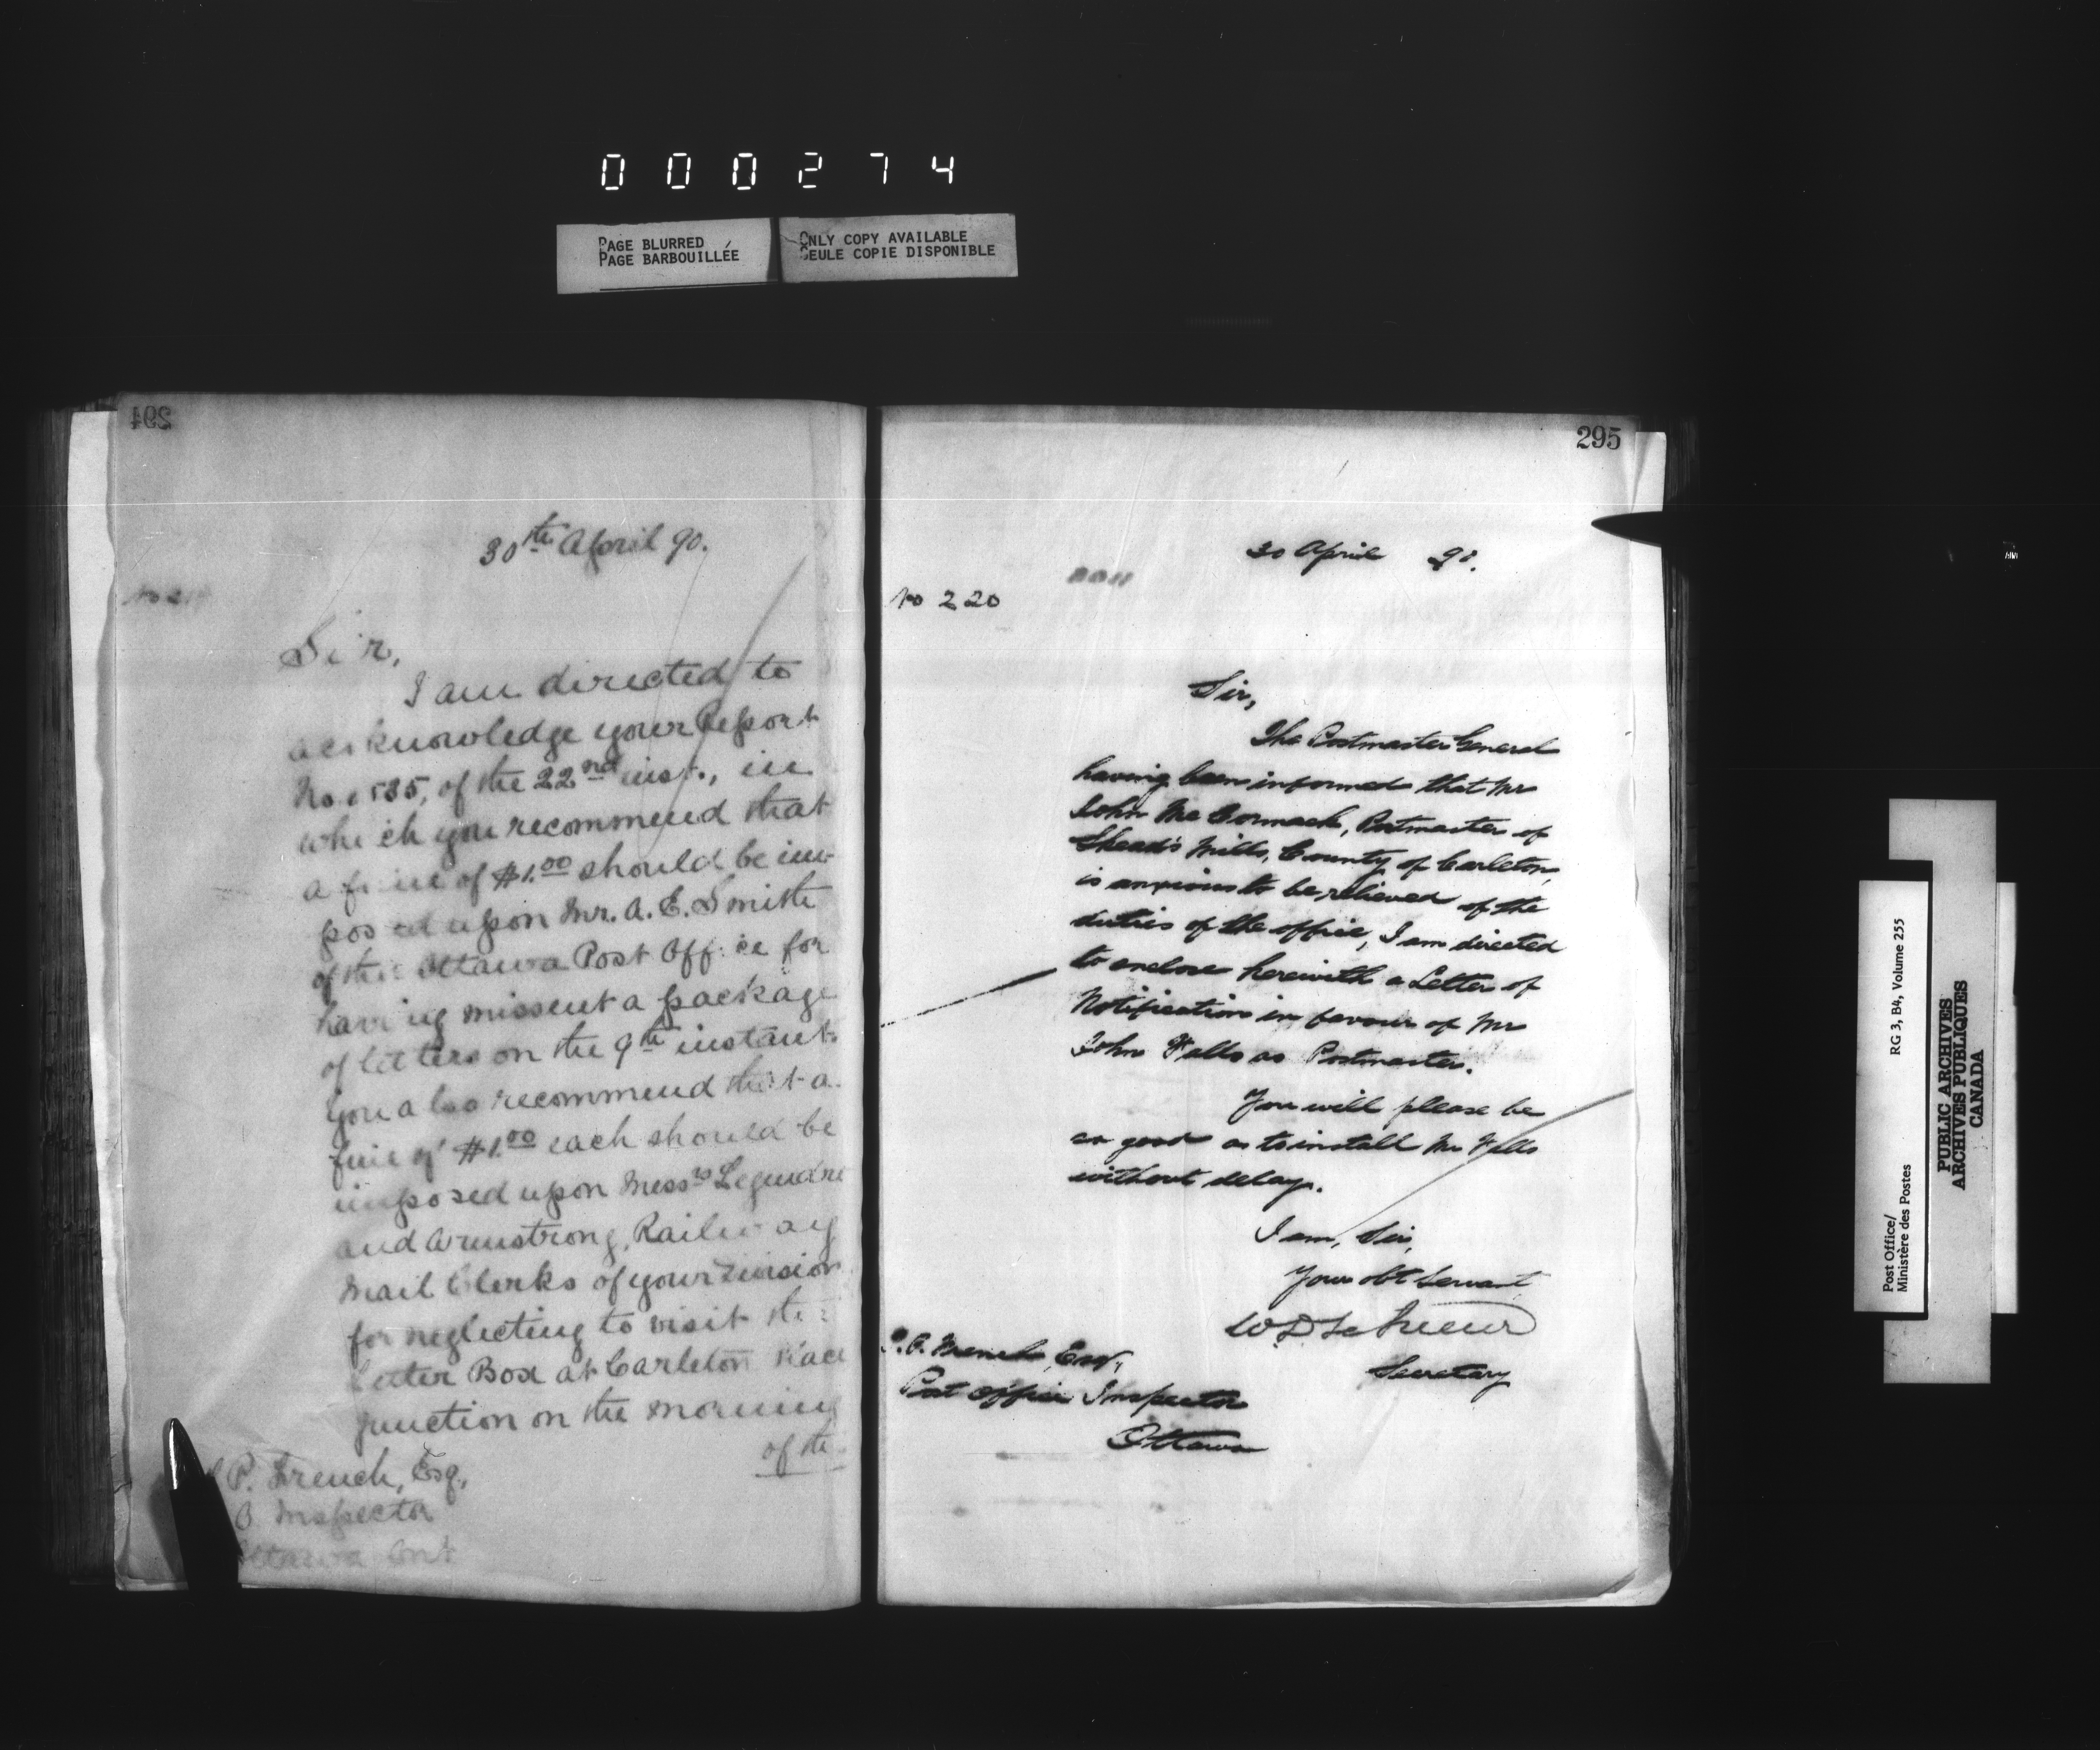 000274
PAGE BLURRED
PAGE BARBOUILLÉE
ONLY COPY AVAILABLE
SEULE COPIE DISPONIBLE
294
30th April 90.
Sir,
I am directed to
acknowledge your Report
No. 535, of the 22nd inst., in
which you recommend that
a fine of $1.00 should be im-
posed upon Mr. A. E. Smith
of the Ottawa Post Office for
having missent a package
of letters on the 9th instant.
You also recommend that a
fine of $1.00 each should be
imposed upon Messrs Legendre
and Armstrong, Railway
Mail Clerks of your Division
for neglecting to visit the
Letter Box at Carleton Place
junction on the morning
of the
P. French, Esq.,
O. Inspector
Ottawa Ont
295
30 April 90.
No 220
Sir,
The Postmaster General
having been informed that Mr
John McCormack, Postmaster of
Shead's Mills, County of Carleton,
is anxious to be relieved of the
duties of the office, I am directed
to enclose herewith a Letter of
Notification in favour of Mr
John Falls as Postmaster.
You will please be
so good as to install Mr Falls
without delay.
I am, Sir,
Your obt Servant
W D LeSueur
Secretary
P. French, Esq.,
Post Office Inspector
Ottawa
Post Office/
Ministère des Postes
RG 3, B4, Volume 255
PUBLIC ARCHIVES
ARCHIVES PUBLIQUES
CANADA